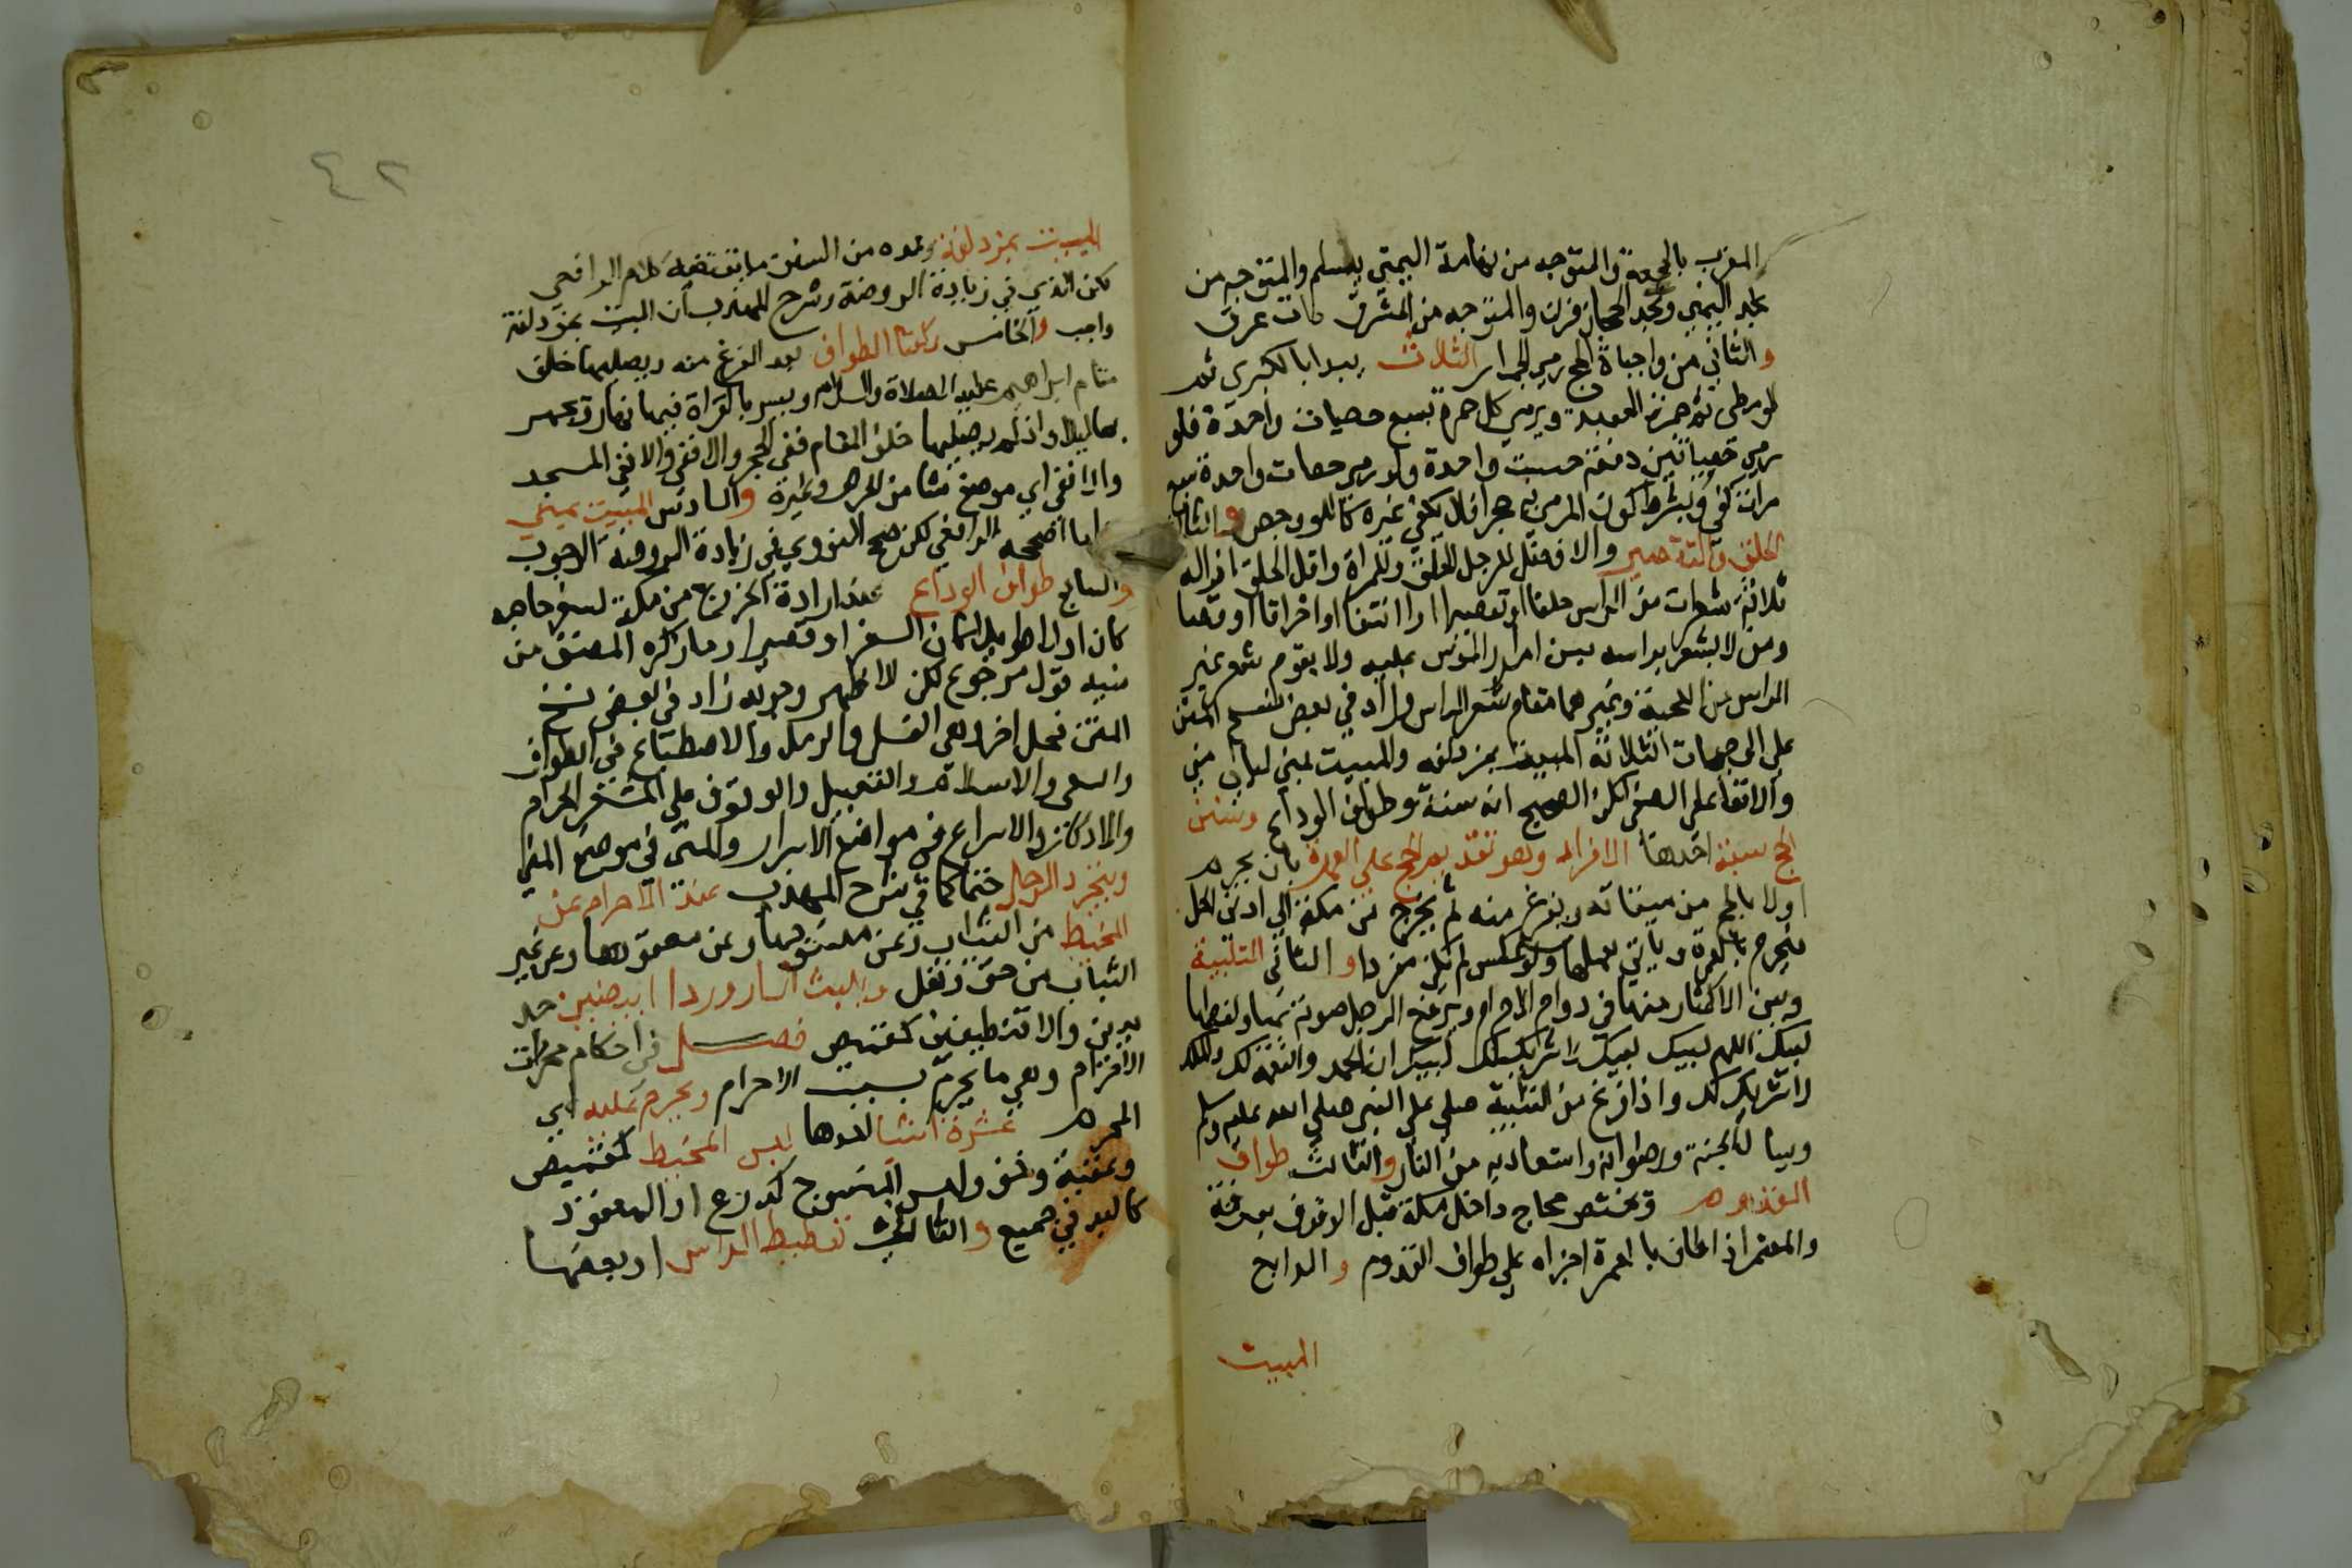 المغرب بالجحفة والمتوجه من تهامة اليمني يلملم والمتوجه من
نجد اليمن ونجد الحجاز قرن والمتوجه من المشرق ذات عرق
والثاني من واجباة الحج رمي الجمار الثلاث يبدا بالكبرى ثم
الوسطى ثم جمرة العقبة ويرمي كل جمرة بسبع حصيات واحدة فلو
رمي حصياتين دفعة حسبت واحدة ولو رمي حصات واحدة سبع
مرات كفى ويشترط كون المرمي به حجرا فلا يكفي غيره كاللو وجص والثالث
الحلق والتقصير والافضل للرجل الحلق وللمراة واقل الحلق ازالة
ثلاثة شعرات من الراس حلقا او تقصيرا او انتفا او احراقا او قصا
ومن لا بشعر براسه يسن امرار الموس عليه ولا يقوم شعر غير
الراس من اللحية وغيرهما مقام شعر الراس وزاد في بعض نسخ المتن
على الى جهات الثلاثة المبيت بمزدلفه والمبيت بمنى ليالي منى
والاتقا على الصفى لكن الصحيح انه سنة وطواف الوداع وسنن
الحج سبعة احدها الافراد وهو تقديم الحج على العمرة بان يحرم
اولا بالحج من ميقاته ويفرغ منه ثم يخرج من مكة الى ادنى الحل
فيحرم بالعمرة ويأتي بعملها ولو عكس لم يكن مفردا والثاني التلبية
ويسن الاكثار منها في دوام الاحرام ويرفع الرجل صوته بها ولفظها
لبيك اللهم لبيك لبيك لا شريك لك لبيك ان الحمد والنعمه لك والملك
لا شريك لك واذا فرغ من التلبية صلى على النبي صلى الله عليه وسلم
ويسا له الجنة ورضوانه واستعاذ به من النار والثالث طواف
القدوم وتختص بحاج داخل مكة قبل الوقوف بعرفة
والمعتمر اذا طاف بالعمرة اجزاه على طواف القدوم والرابع
المبيت
٤٢
المبيت بمزدلفة وعده من السنن ما يقتضيه كلام الرافعي
لكن الذي في زيادة الروضة وشرح المهذب أن المبيت بمزدلفة
واجب والخامس ركعتا الطواف بعد الفرغ منه ويصليهما خلف
مقام ابراهيم عليه الصلاة والسلام ويسر بالقراة فيهما نهارا ويجهر
بها ليلا واذا لم يصليهما خلف المقام ففي الحجر والا ففي والا ففي المسجد
والا ففي اي موضع شا من الحرم وغيره والسادس المبيت بمنى
ما صححه الرافعي لكن صح النووي في زيادة الروضه الوجوب
والسابع طواف الوداع عند ارادة الخروج من مكة لسفر حاجه
كان او لا طويلا كان السفر او قصيرا وما ذكره المصنف من
سنيه قول مرجوع لكن الاظهر وجوبه زاد في بعض نسخ
المتن فحل اخر وهي الغسل والرمل والاضطباع في الطواف
والسعي والاستلام والتقبيل والوقوف على المشعر الحرام
والاذكار والاسراع في مواضع الاسرار والمشي في موضع المشي
ويتجرد الرجال حتما كما في شرح المهذب عند الاحرام عن
المخيط من الثياب وعن منسوجها وعن معقودها وعن غير
الثياب من خف ونعل ويلبث ازار وردا ابيضين جد
يدين والا فنظيفين كقميص فصل في احكام محرمات
الاحرام وهي ما يحرم بسبب الاحرام ويحرم عليه اي
المحرم عشرة اشيا احدها لبس المخيط كقميص
وعقبة وخف ولبس المنسوج كدرع او المعقود
كالبد في جميع والثاني تغطية الراس او بعضها